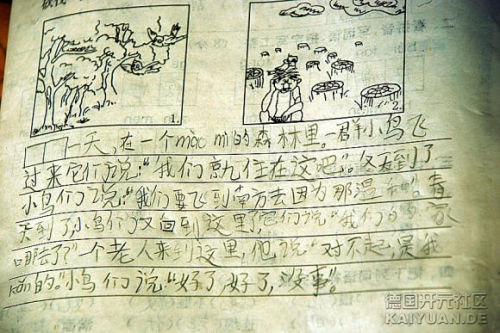 1.
2.
一天，在一个mào mì的森林里。一群小鸟飞
过来它们说：“我们就住在这吧”。冬天到了
小鸟们说：“我们要飞到南方去因为那温和”。春
天到了小鸟们又回到这里，它们说“我们的家
哪去了？”一个老人来到这里，他说“对不起，是我
的。”小鸟们说“好了好了，没事”。
德国开元社区
KAIYUAN.DE